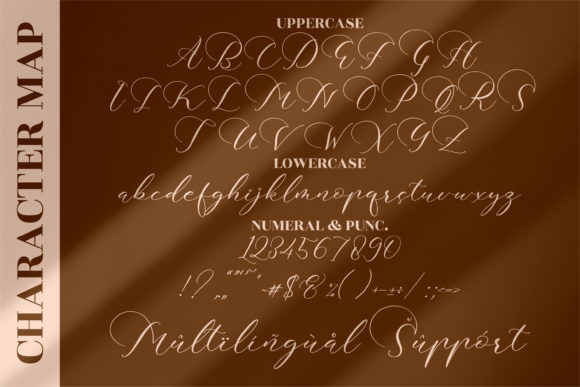 CHARACTER MAP
UPPERCASE
A B C D E F G H
I J K L M N O P Q R S
T U V W X Y Z
LOWERCASE
abcdefghijklmnopqrstuvwxyz
NUMERAL & PUNC.
1234567890
!? ~#$&%()+-±÷/:;<=>
Mûltïlíñgùàl Süppórt